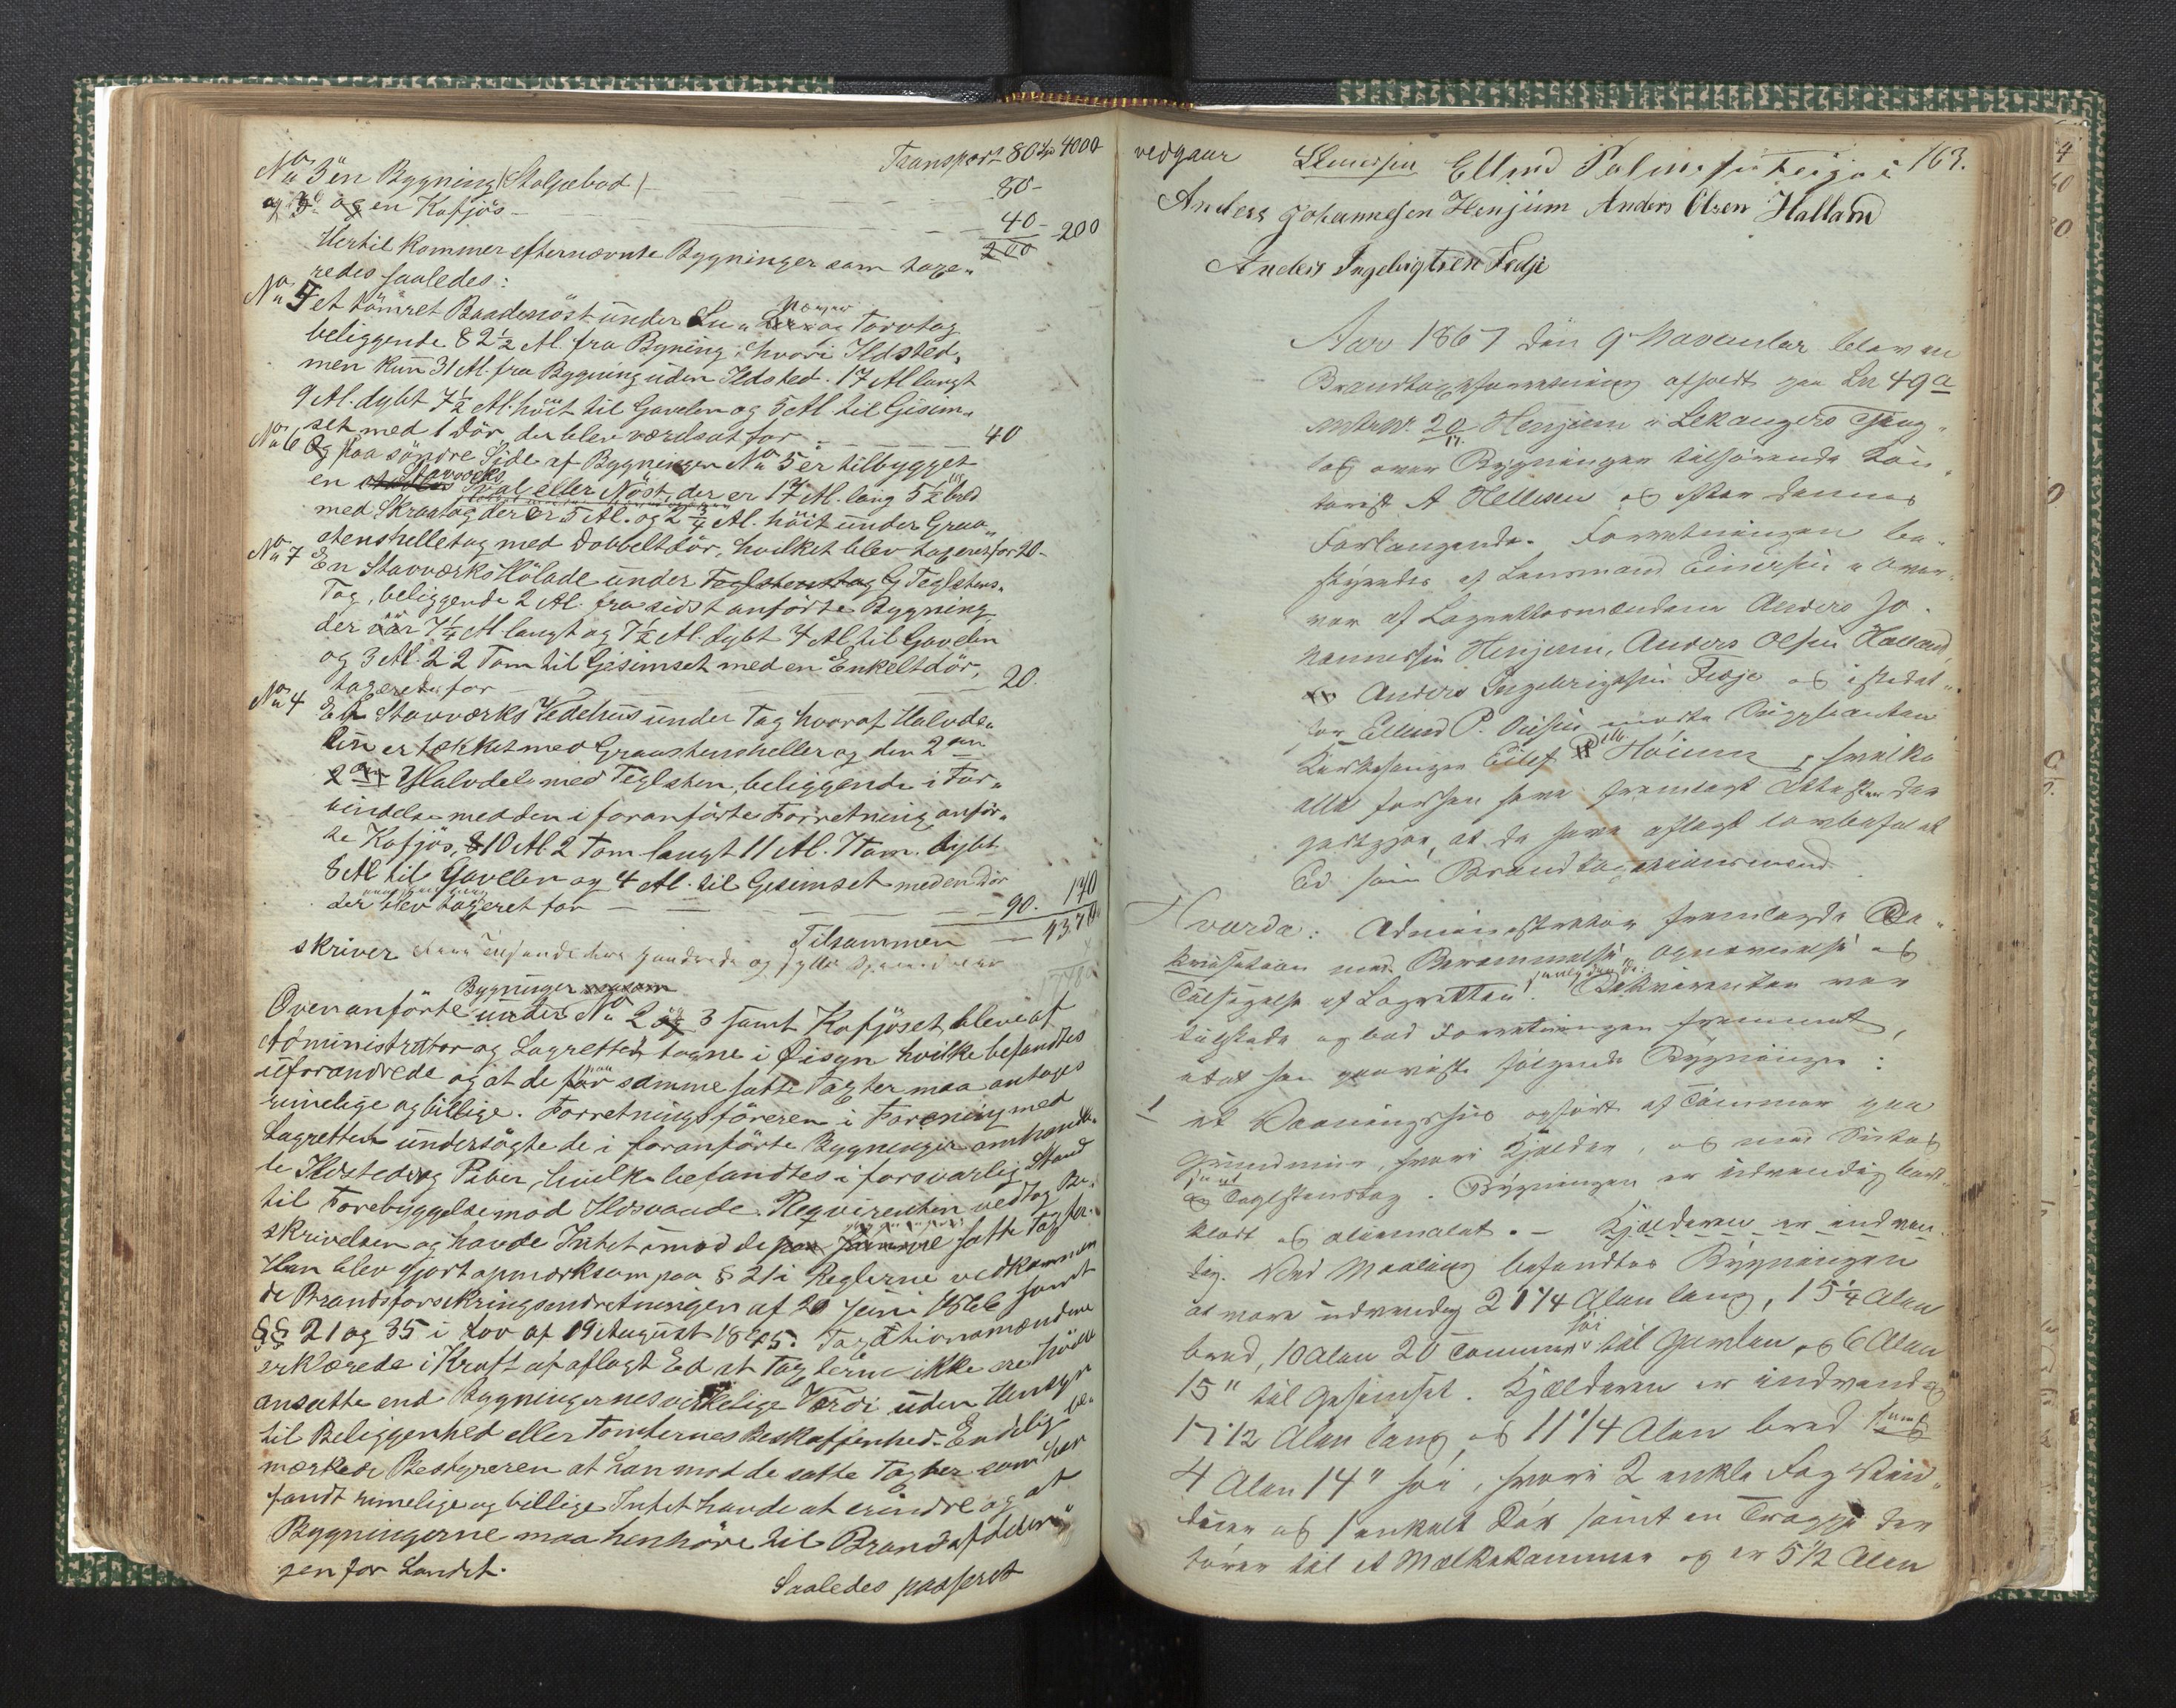 Transport 80 Spd 4000
No 3 en Bygning (Stolpebod) - 80-
og en Kofjös - 40- 200
Hertil kommer efternævnte Bygninger som taxe-
redes saaledes:
No 5 et tömret Baadenöst under Su- Næver og Torvtag
beliggende 82½ Al. fra Bygning hvori Ildsted,
men kun 31 Al. fra Bygning uden Ildsted. 17 Al langt
9 Al. dybt 7½ Al. höit til Gavelen og 5 Al til Gisim-
set med 1 Dör, der blev værdsat for - 40
No 6 Og paa söndre Side af Bygningen No 5 er tilbygget
en Stavværks Sval eller Nöst, der er 17 Al. lang 5½ Al. bred
med Skraatag der er 5 Al. og 2¾ Al. höit under Graa-
stenshelletag med Dobbeltdör, hvilket blev taxeret for 20-
No 7 En Stavværks Hölade under Teglstenstag G Teglstens-
Tag, beliggende 2 Al. fra sidst anförte Bygning
der er 7¼ Al langt og 7½ Al. dybt 4 Al til Gavelen
og 3 Al. 22 Tom til Gesimset med en Enkeltdör,
taxeret for - 20.
No 4 Et Stavværks Vedehus under Tag hvoraf Halvde-
len er tækket med Graastensheller og den 2den
Halvdel med Teglsten, beliggende i For-
bindelse med den i foranförte Forretning anför-
te Kofjös, 10 Al 2 Tom langt 11 Al. 7 Tom. dybt
8 Al til Gavelen og 4 Al. til Gesimset med en Dör
der blev taxeret for - 90. 170
Tilsammen - 4370
skriver fire tusende tre hundrede og sytti Speciedaler
Bygninger
Ovenanförte under No 2 og 3 samt Kofjöset, bleve af
Administrator og Lagretten tagne i Öisyn hvilke befandtes
uforandrede og at de paa samme satte Taxter maa antages
rimelige og billige. Forretningsföreren i Forening med
Lagretten undersögte de i foranförte Bygninger anbragte
Ildsteder og Piber, hvilke befandtes i forsvarlig Stand
til Forebyggelse mod Ildsvaade. Reqvirenten vedtog Be-
skrivelsen og havde Intet imod de satte Taxter.
Han blev gjort opmærksom paa § 21 i Reglerne vedkommen
de Brandsforsikringsindretningen af 20 Juni 1866 samt
§§ 21 og 35 i Lov af 19 August 1845. Taxationsmændene
erklærede i Kraft af aflagt Ed at Taxterne ikke ere höiere
ansatte end Bygningernes virkelige Værdi uden Hensyn
til Beliggenhed eller Tomternes Beskaffenhed. Endelig be-
mærkede Bestyreren at han mod de satte Taxter som han
fandt rimelige og billige Intet havde at erindre og at
Bygningerne maa henhöre til Brandafdelin-
gen for Landet.
Saaledes passeret
vedgaar Ellend 163.
Anders Johannesen Henjum Anders Olsen Halland
Anders Ingebrigtsen Fedje
Aar 1867 den 9 November blev en
Brandtaxtforretning afholdt paa Ln 49a
matr No 20 Henjum i Lekangers Thing-
lag over Bygninger tilhörende Kon-
torist A Hellesen og efter dennes
Forlangende. Forretningen be-
styredes af Lensmand Einersen i Over-
vær af Lagrettesmændene Anders Jo-
hannessen Henjum, Anders Olsen Halland,
Anders Ingebrigtsen Fedje og istedet-
for Ellend P. mödte Supplianten
Kirkesanger Eilef Höium, hvilke
alle forhen have fremlagt Attester der
godtgjör, at de have aflagt lovbefalet
Ed som Brandtaxationsmænd.
Hvorda: Administrator fremlagde Re-
kvisition med Berammelse og
Tilsigelse af Lagretten. Rekvirenten var
tilstede og bad Forretningen fremmet,
idet han paaviste fölgende Bygninger:
1 et Vaaningshus opfört af Tömmer paa
Grundmur, hvori Kjelder, og med Sutag
Teglstenstag. Bygningen er udvendig bord-
klædt og oliemalet. - Kjelderen er indven-
dig. Ved Maaling befandtes Bygningen
at være udvendig 21¼ Alen lang, 15¼ Alen
bred, 10 Alen 20 Tommer höi til Gavlen og 6 Alen
15" til Gesimset. Kjælderen er indvendig
17½ Alen lang og 11¼ Alen bred samt
4 Alen 14" höi, hvori 2 enkle Fag Vin-
duer og 1 enkelt Dör samt en Trappe der
förer til et Melkekammer og er 5½ Alen